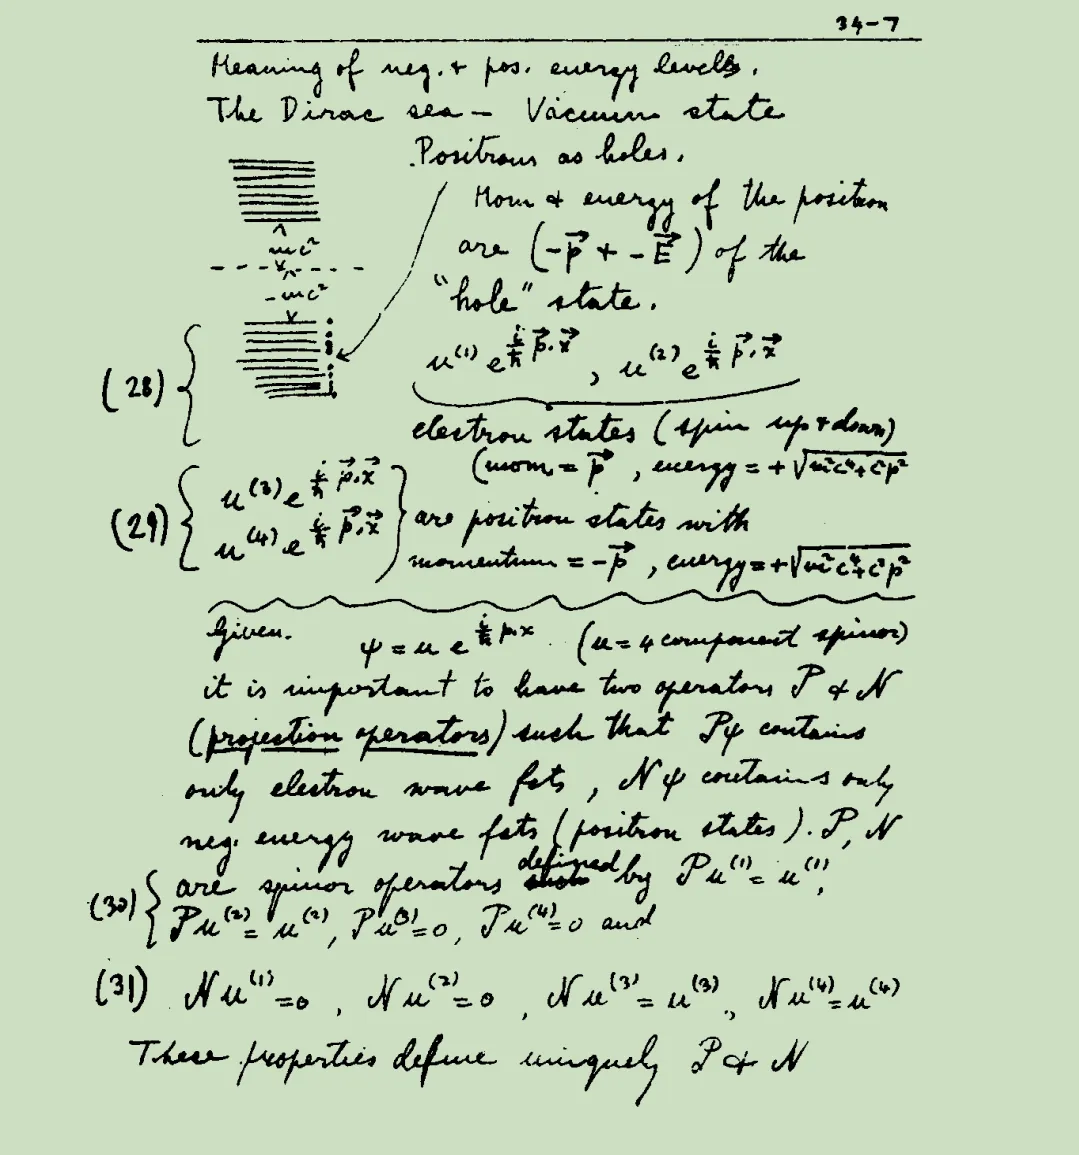 34-7
Meaning of neg. + pos. energy levels.
The Dirac sea – Vacuum state
Positrons as holes.
Mom & energy of the positron
mc²
are (-p⃗ + -E⃗) of the
-mc²
"hole" state.
(28) { u⁽¹⁾ e^{i/ħ p⃗.x⃗} , u⁽²⁾ e^{i/ħ p⃗.x⃗}
electron states (spin up & down)
(mom. = p⃗ , energy = + √m²c⁴+c²p²
(29) { u⁽³⁾ e^{i/ħ p⃗.x⃗} } are positron states with
u⁽⁴⁾ e^{i/ħ p⃗.x⃗} momentum = -p⃗ , energy = + √m²c⁴+c²p²
Given. ψ = u e^{i/ħ p.x} (u = 4 component spinor)
it is important to have two operators P & N
(projection operators) such that Pψ contains
only electron wave fcts , Nψ contains only
neg. energy wave fcts (positron states). P, N
(30) { are spinor operators defined by Pu⁽¹⁾ = u⁽¹⁾,
Pu⁽²⁾ = u⁽²⁾, Pu⁽³⁾ = 0, Pu⁽⁴⁾ = 0 and
(31) Nu⁽¹⁾ = 0 , Nu⁽²⁾ = 0 , Nu⁽³⁾ = u⁽³⁾, Nu⁽⁴⁾ = u⁽⁴⁾
These properties define uniquely P & N